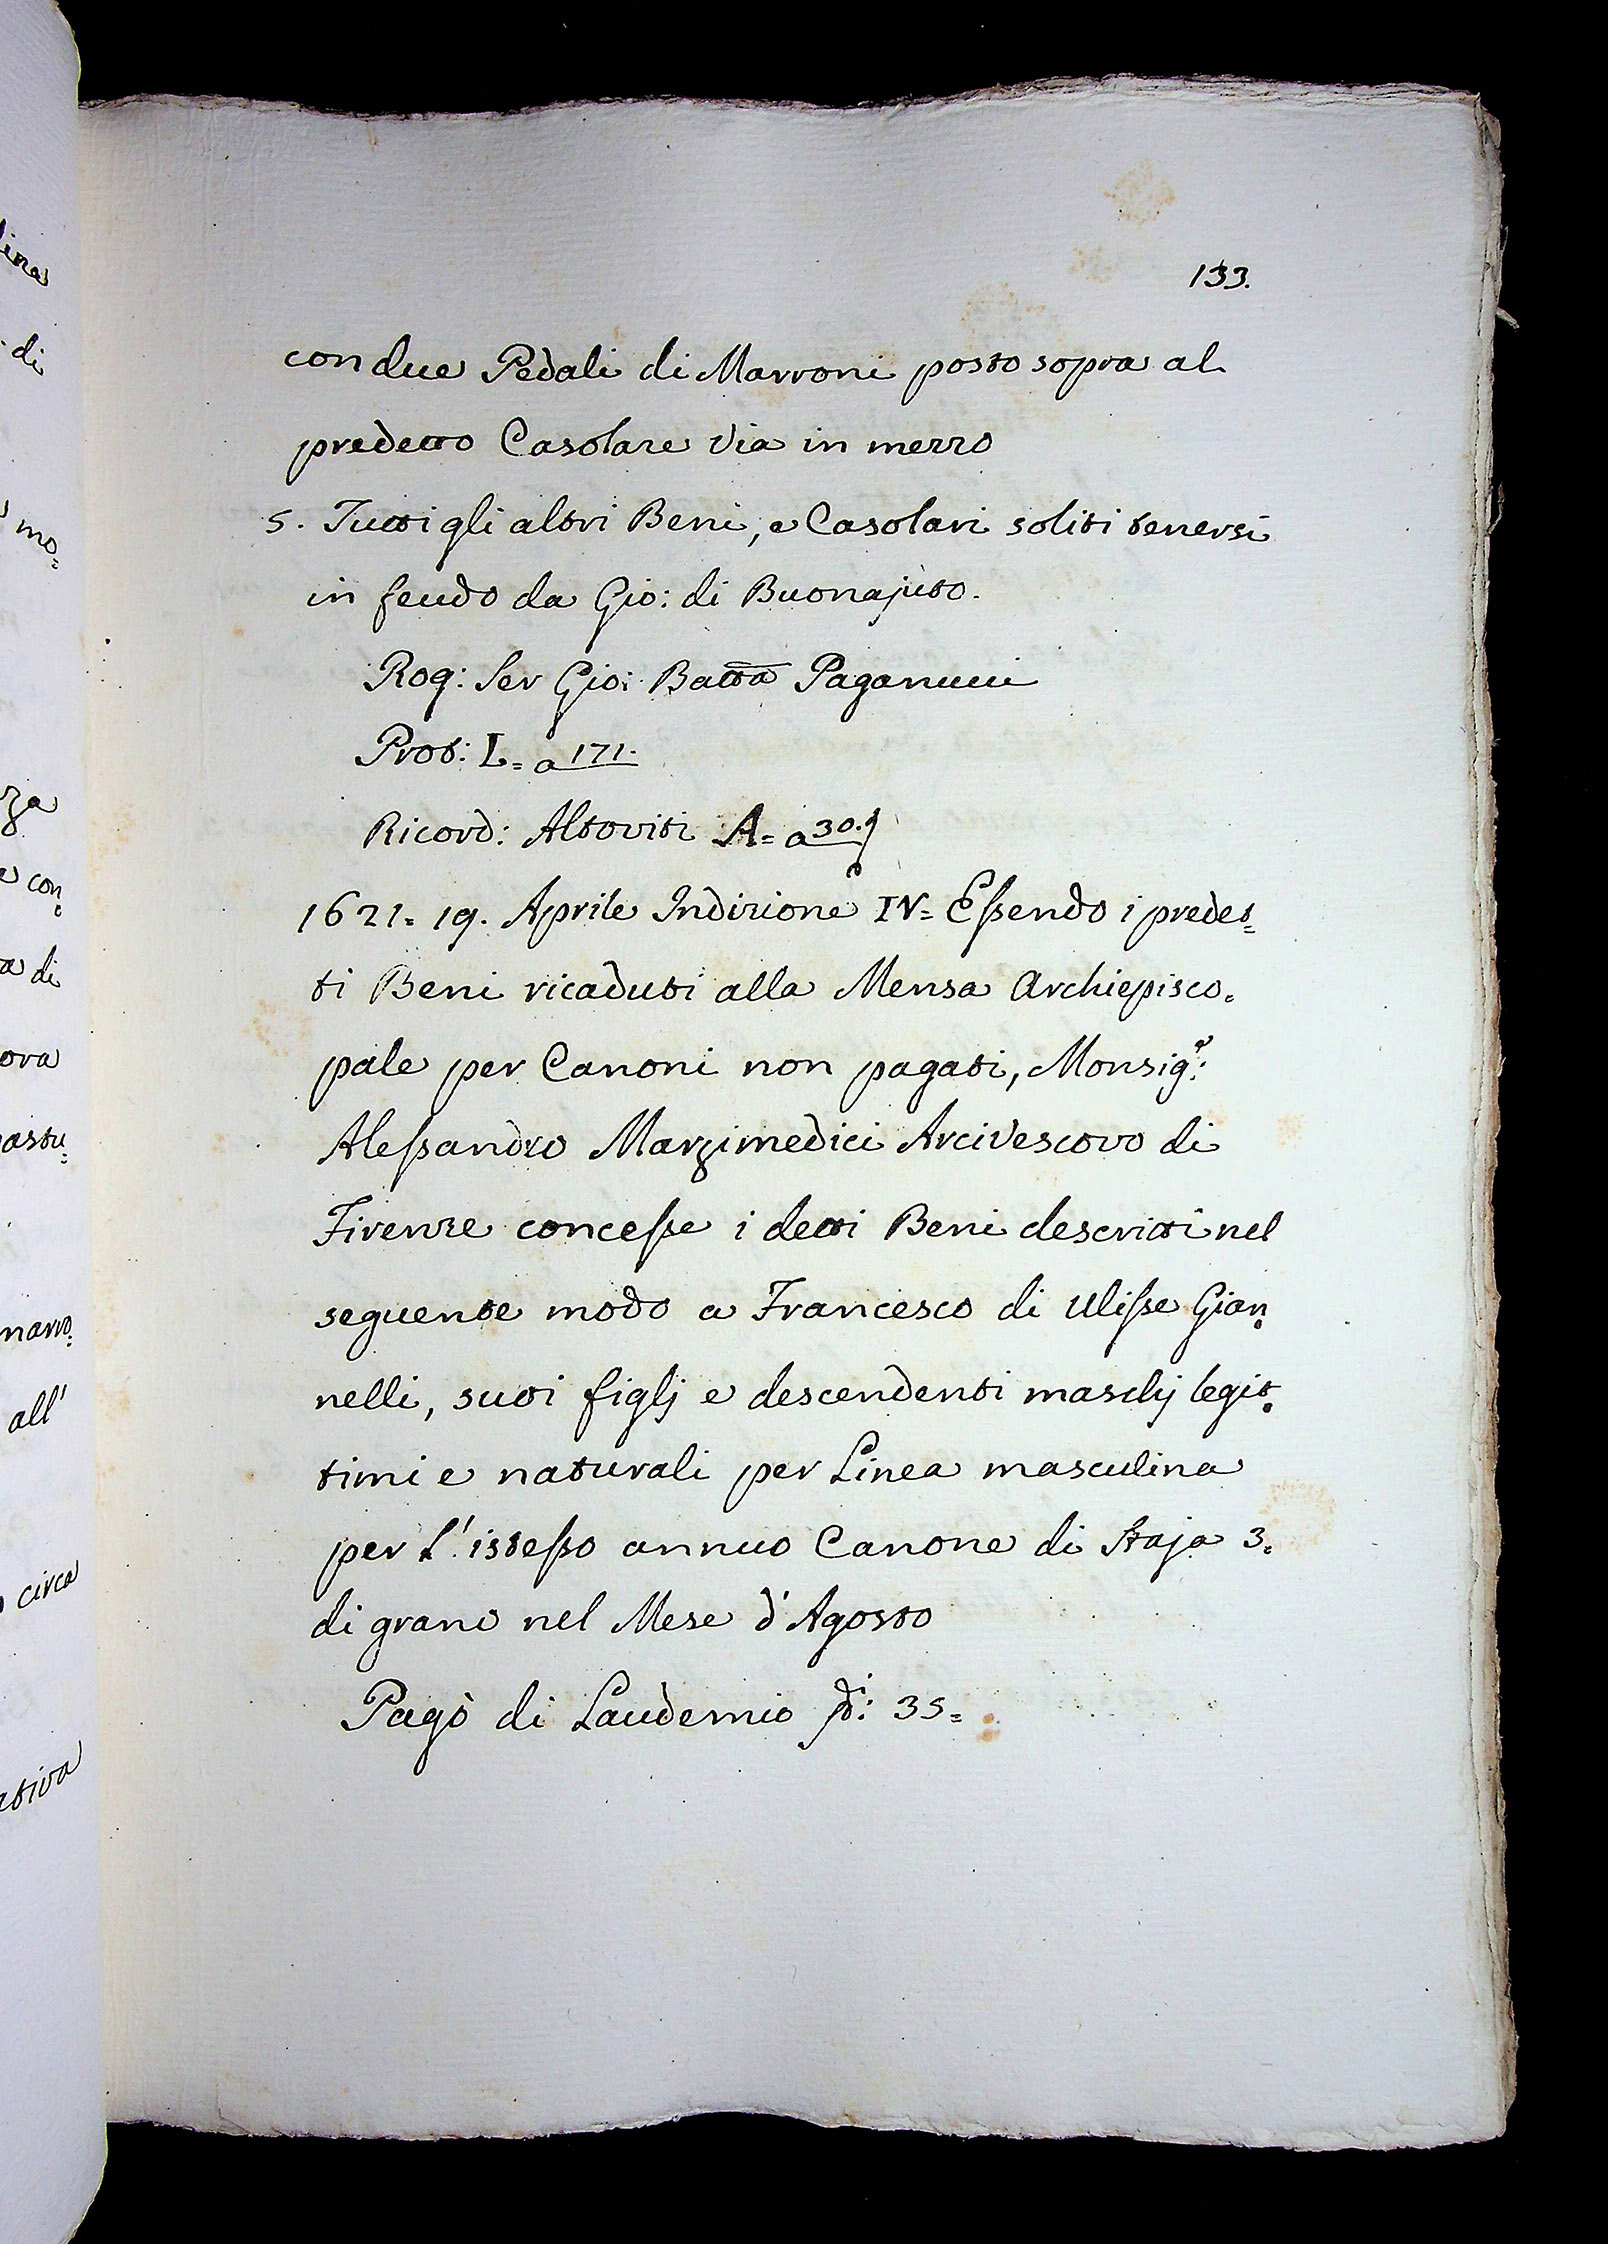 lina
di
mo=
za
con=
a di
ova
astu=
marro=
all'
circa
ativa
133.
con due Pedali di Marroni posto sopra al
predetto Casolare via in mezzo
5. Tutti gli altri Beni, e Casolari soliti tenersi
in feudo da Gio: di Buonajuto.
Rog: Ser Gio: Batta Paganucci
Prot: L= a 171.
Ricord: Altoviti A= a 30.
1621= 19. Aprile Indizione IV= Essendo i predet=
ti Beni ricaduti alla Mensa Archiepisco=
pale per Canoni non pagati, Monsig.r:
Alessandro Marzimedici Arcivescovo di
Firenze concesse i detti Beni descritti nel
seguente modo a Francesco di Ulisse Gian=
nelli, suoi figlj e descendenti maschj legit=
timi e naturali per Linea masculina
per l'istesso annuo Canone di Staja 3=
di grano nel Mese d'Agosto
Pagò di Laudemio 35=